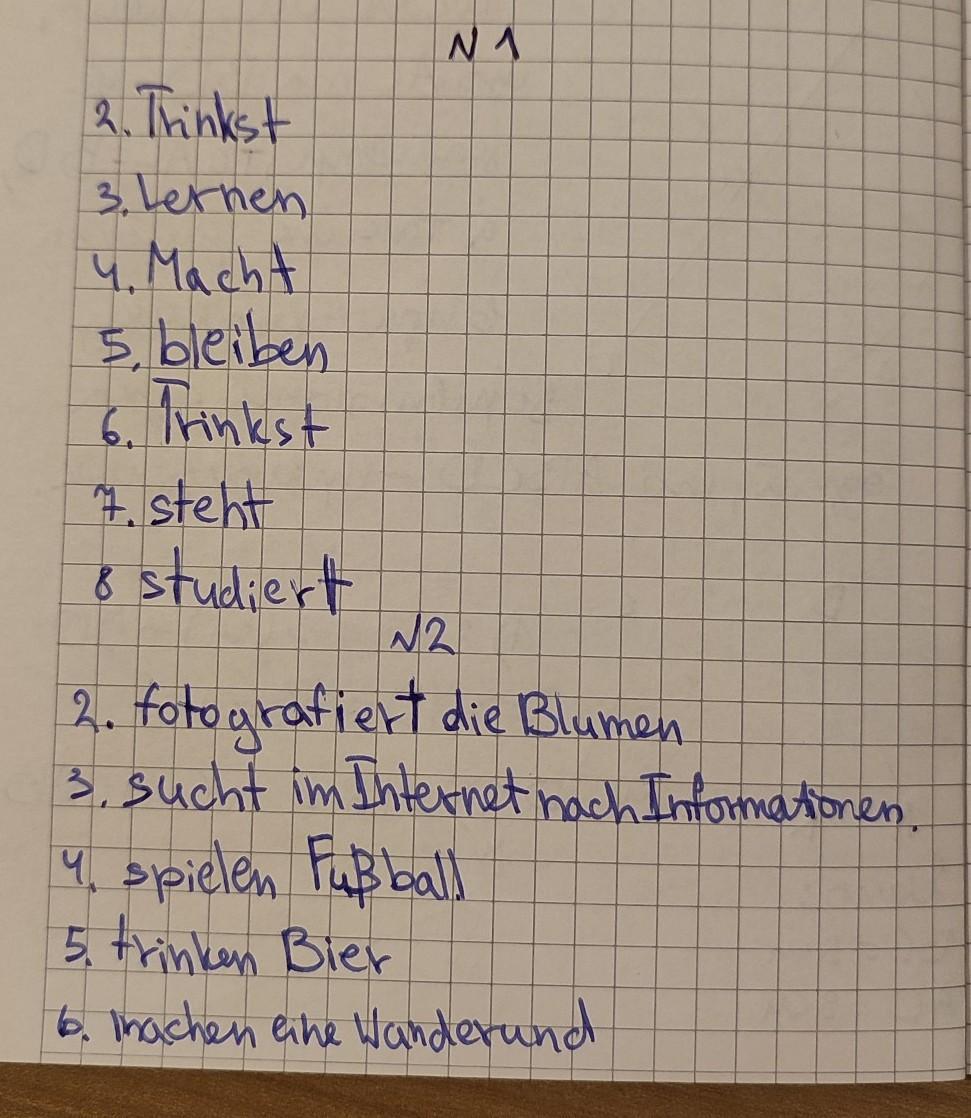 N 1
2. Trinkst
3. Lernen
4. Macht
5, bleiben
6. Trinkst
7. steht
8 studiert
N2
2. fotografiert die Blumen
3. sucht im Internet nach Informationen.
4. spielen Fußball
5. trinken Bier
6. machen eine Wanderund